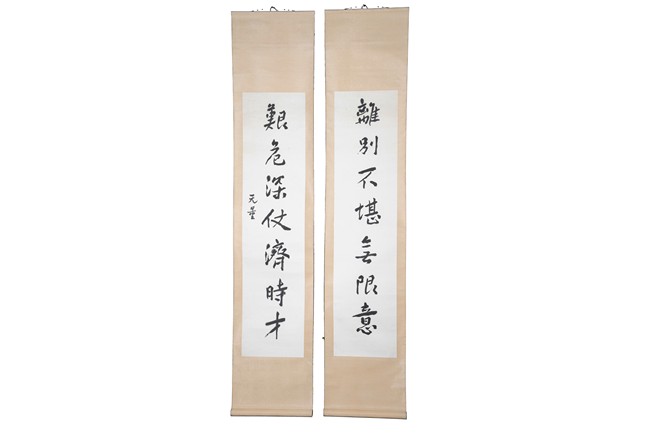 離別不堪無限意
艱危深仗濟時才
元量